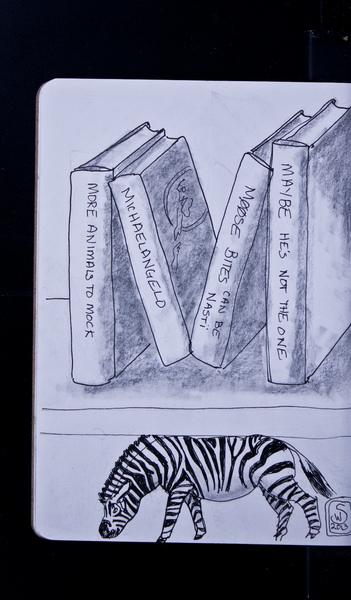 MORE ANIMALS TO MOCK
MICHAELANGELO
MØØSE BITES CAN BE
NASTi
MAYBE HE'S NOT THE ONE